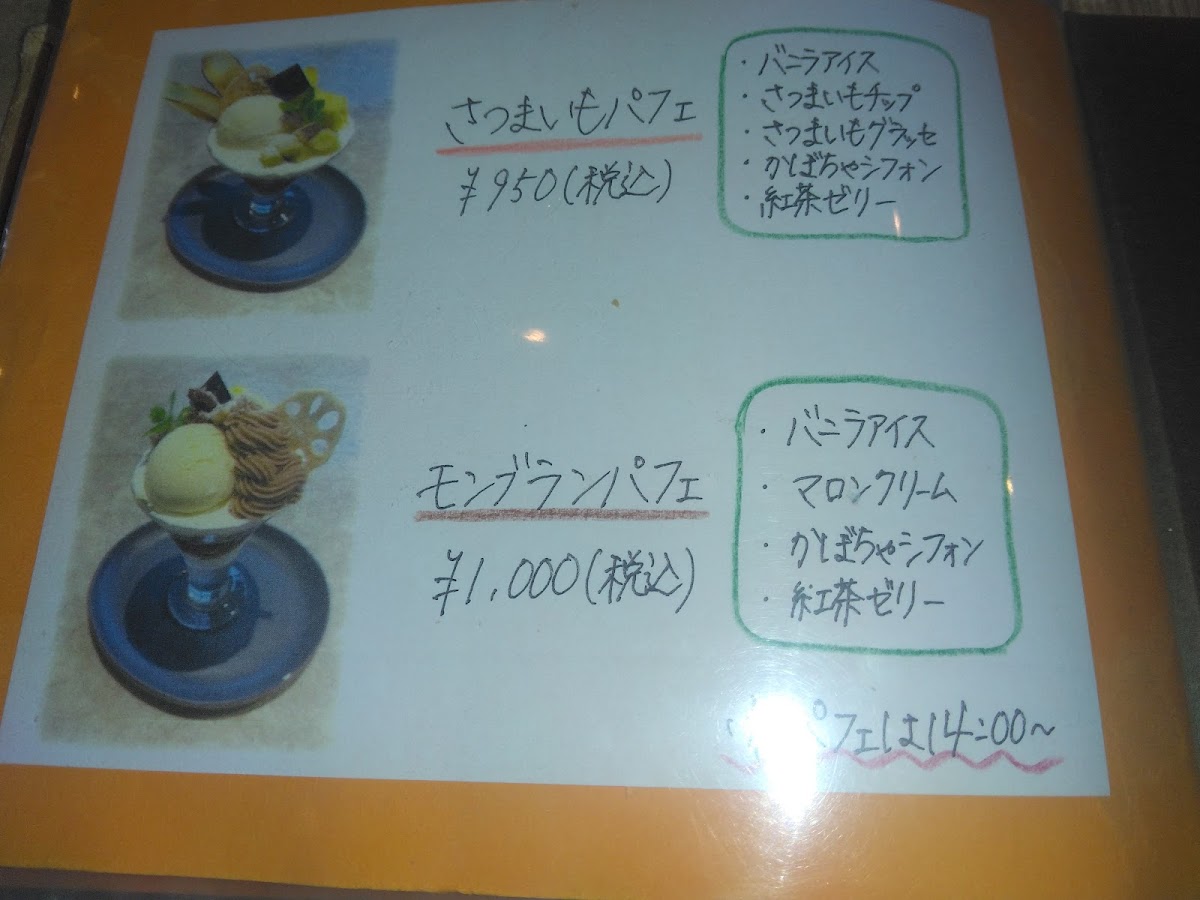 さつまいもパフェ
¥950(税込)
・バニラアイス
・さつまいもチップ
・さつまいもグラッセ
・かぼちゃシフォン
・紅茶ゼリー
モンブランパフェ
¥1,000(税込)
・バニラアイス
・マロンクリーム
・かぼちゃシフォン
・紅茶ゼリー
パフェは14:00〜